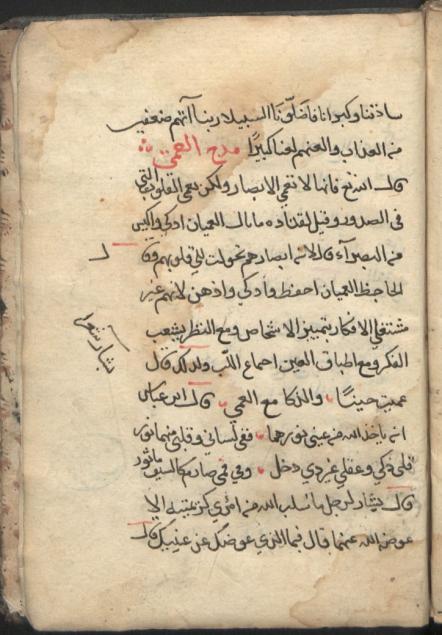 ساداتنا وكبرانا فاضلونا السبيلا ربنا آتهم ضعفين
من العذاب والعنهم لعنا كبيرًا مدح العمى
قال الله تع فانها لا تعمى الابصار ولكن تعمى القلوب التي
في الصدور وقيل لقتاده ما بال العميان اذكى واكيس
من البصرآء قال لان ابصارهم تحولت الى قلوبهم وقال
الجاحظ العميان احفظ واذكى واذهن لانهم غير
مشتغلي الافكار بتمييز الاشخاص ومع النظر يتشعب
الفكر ومع اطباق العين اجماع اللب ولذلك قال
بشار شعرا
عميت جنينًا والذكا مع العمى قال ابن عباس
ان ياخذ الله من عيني نورهما ففي لساني وقلبي منهما نور
قلبي ذكي وعقلي غير ذي دخل وفي فمي صارم كالسيف ماثور
قال بشار لرجل ما سلب الله من امرئ كريمتيه الا
عوضه الله عنهما قال فما الذي عوضك عن عينيك قال